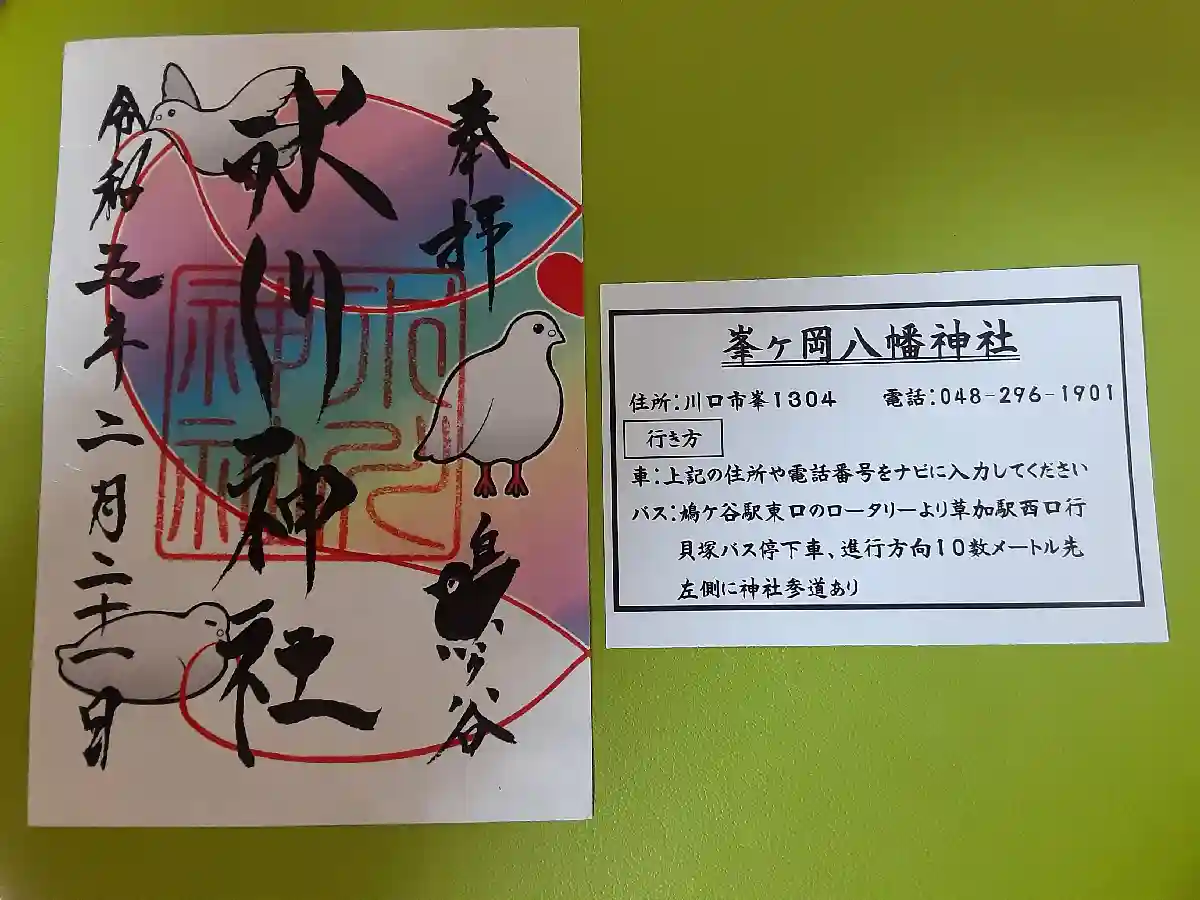 奉拝
鳩ヶ谷
氷川神社
氷川神社
令和五年二月二十一日
峯ヶ岡八幡神社
住所:川口市峯1304 電話:048-296-1901
行き方
車:上記の住所や電話番号をナビに入力してください
バス:鳩ケ谷駅東口のロータリーより草加駅西口行
貝塚バス停下車、進行方向10数メートル先
左側に神社参道あり